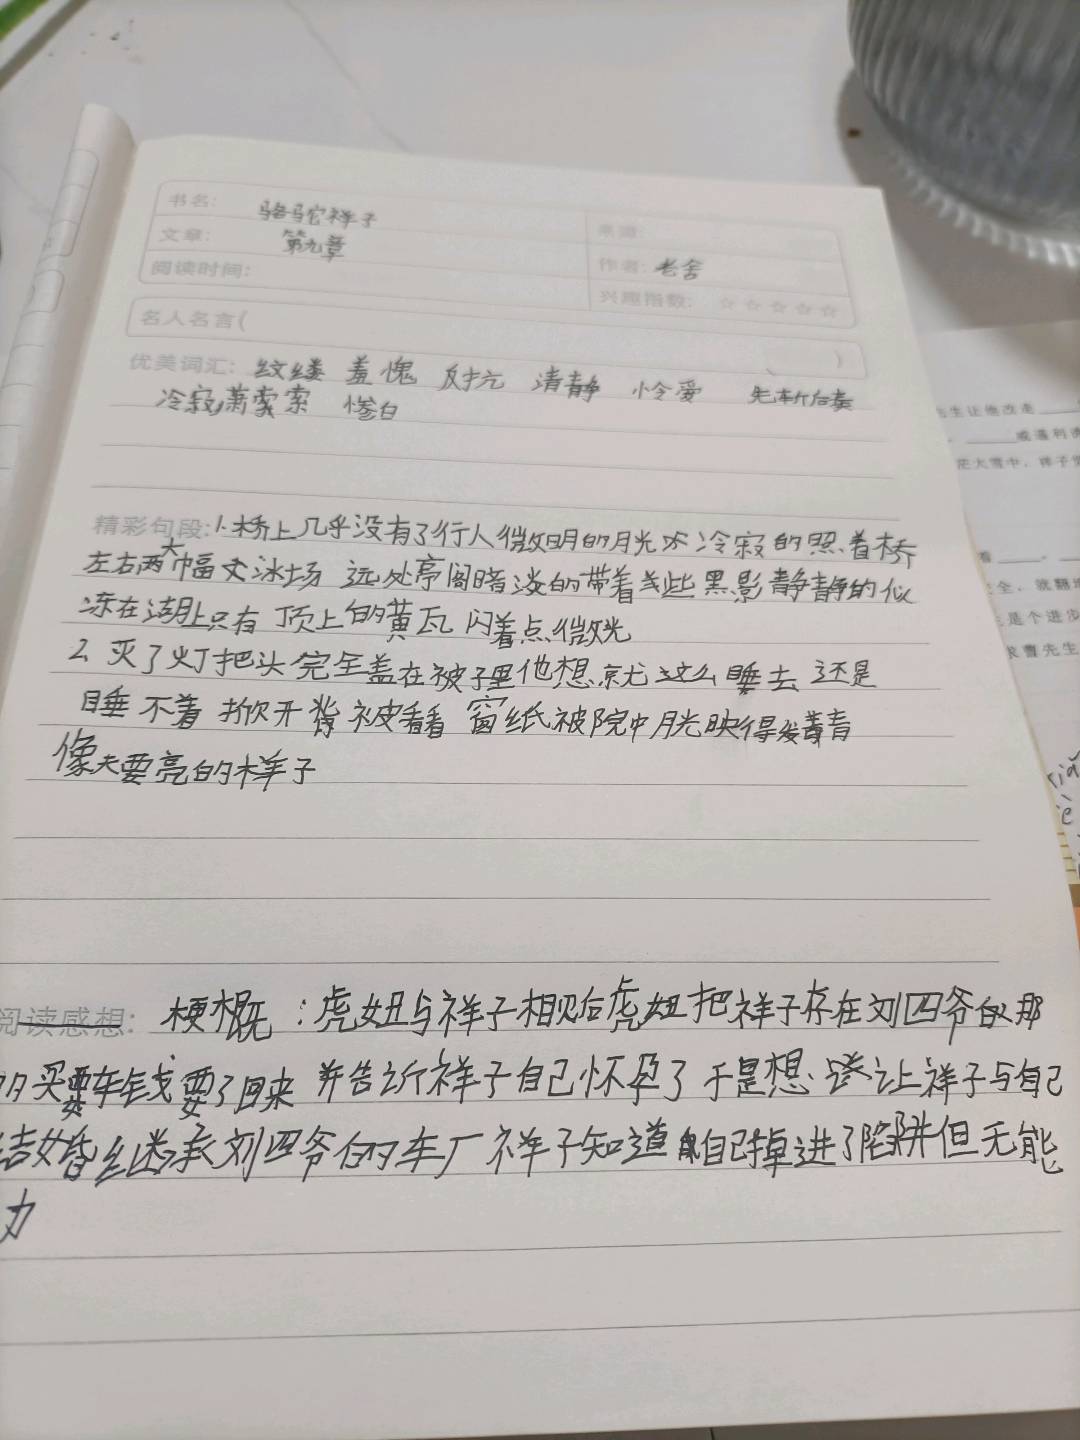 书名： 骆驼祥子
来源
文章： 第九章
作者：老舍
阅读时间：
兴趣指数： ☆☆☆☆☆
名人名言（ ）
优美词汇：纹缕 羞愧 反抗 清静 怜爱 先斩后奏
冷寂萧索 惨白
精彩句段：1.桥上几乎没有了行人微明的月光 冷寂的照着桥
左右两大幅 冰场 远处亭阁暗淡的带着些黑影静静的似
冻在湖上只有顶上的黄瓦闪着点微光
2、灭了灯把头完全盖在被子里他想就这么睡去 还是
睡不着 掀开 被看看 窗纸被院中月光映得发青
像天要亮的样子
阅读感想：梗概：虎妞与祥子相见后虎妞把祥子存在刘四爷的那
买车钱要了回来 并告诉祥子自己怀孕了 于是想 让祥子与自己
结婚继承刘四爷的车厂 祥子知道自己掉进了陷阱但无能
力
先生让他改走
或遥利诱
茫大雪中，祥子
看
安全，就翻
是个进步
求曹先生